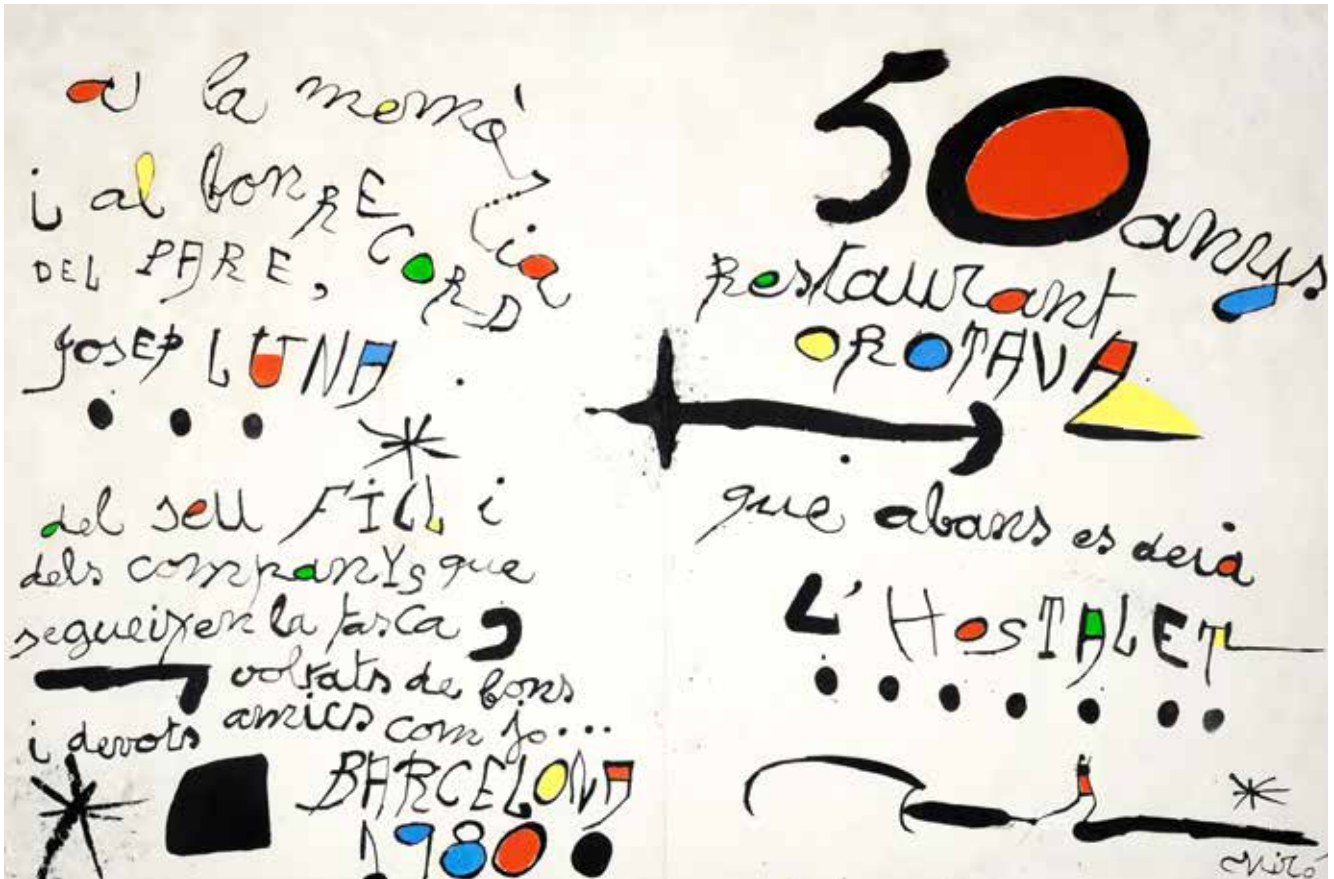 a la memòria
i al bon RECORD
DEL PARE,
JOSEP LUNA.
del seu FILL i
dels companys que
segueixen la tasca
voltats de bons
i devots amics com jo...
BARCELONA
1980.
50 anys
Restaurant
OROTAVA
que abans es deia
L'HOSTALET
Miró